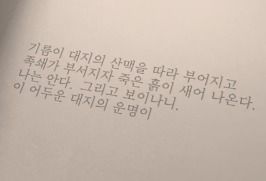 기름이 대지의 산맥을 따라 부어지고
족쇄가 부서지자 죽은 흙이 새어 나온다.
나는 안다. 그리고 보이나니.
이 어두운 대지의 운명이